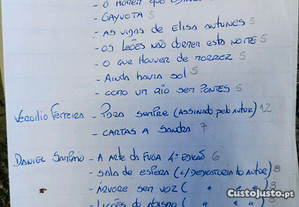 - O HOMEM QUE
- GAIVOTA 5
- AS VIDAS DE ELISA ANTUNES 5
- OS LEÕES NÃO DORMEM ESTA NOITE 5
- O QUE HOUVER DE MORRER 5
- AINDA HAVIA SOL 5
- COMO UM RIO SEM PONTES 5
VERGÍLIO FERREIRA - PARA SEMPRE (ASSINADO PELO AUTOR) 12
- CARTAS A SANDRA 7
DANIEL SAMPAIO - A ARTE DA FUGA 4ª EDIÇÃO 6
- SALA DE ESPERA (C/ DEDICATÓRIA DO AUTOR) 8
- ÁRVORE SEM VOZ ( " " )
- LIÇÕES DO ABISMO ( "
CustoJusto.pt